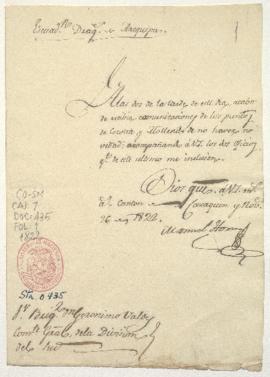 A las dos de la tarde de este dia, acabo
de recibir comunicaciones de los puntos
de y Mollendo de no haver no
vedad; acompañando á V.S. los dos oficios
qe. de este ultimo me incluien.
Dios gue. á V.S. ms. as.
Canton y Nove.
26 1822
Manuel
CO-SM
CAJ. 7
DOC. 435
FOL. 1
1822
Sta. 0435
Sr. Brigr. Dn. Geronimo Valdes
Comte. Gral. de la Division
del Sur